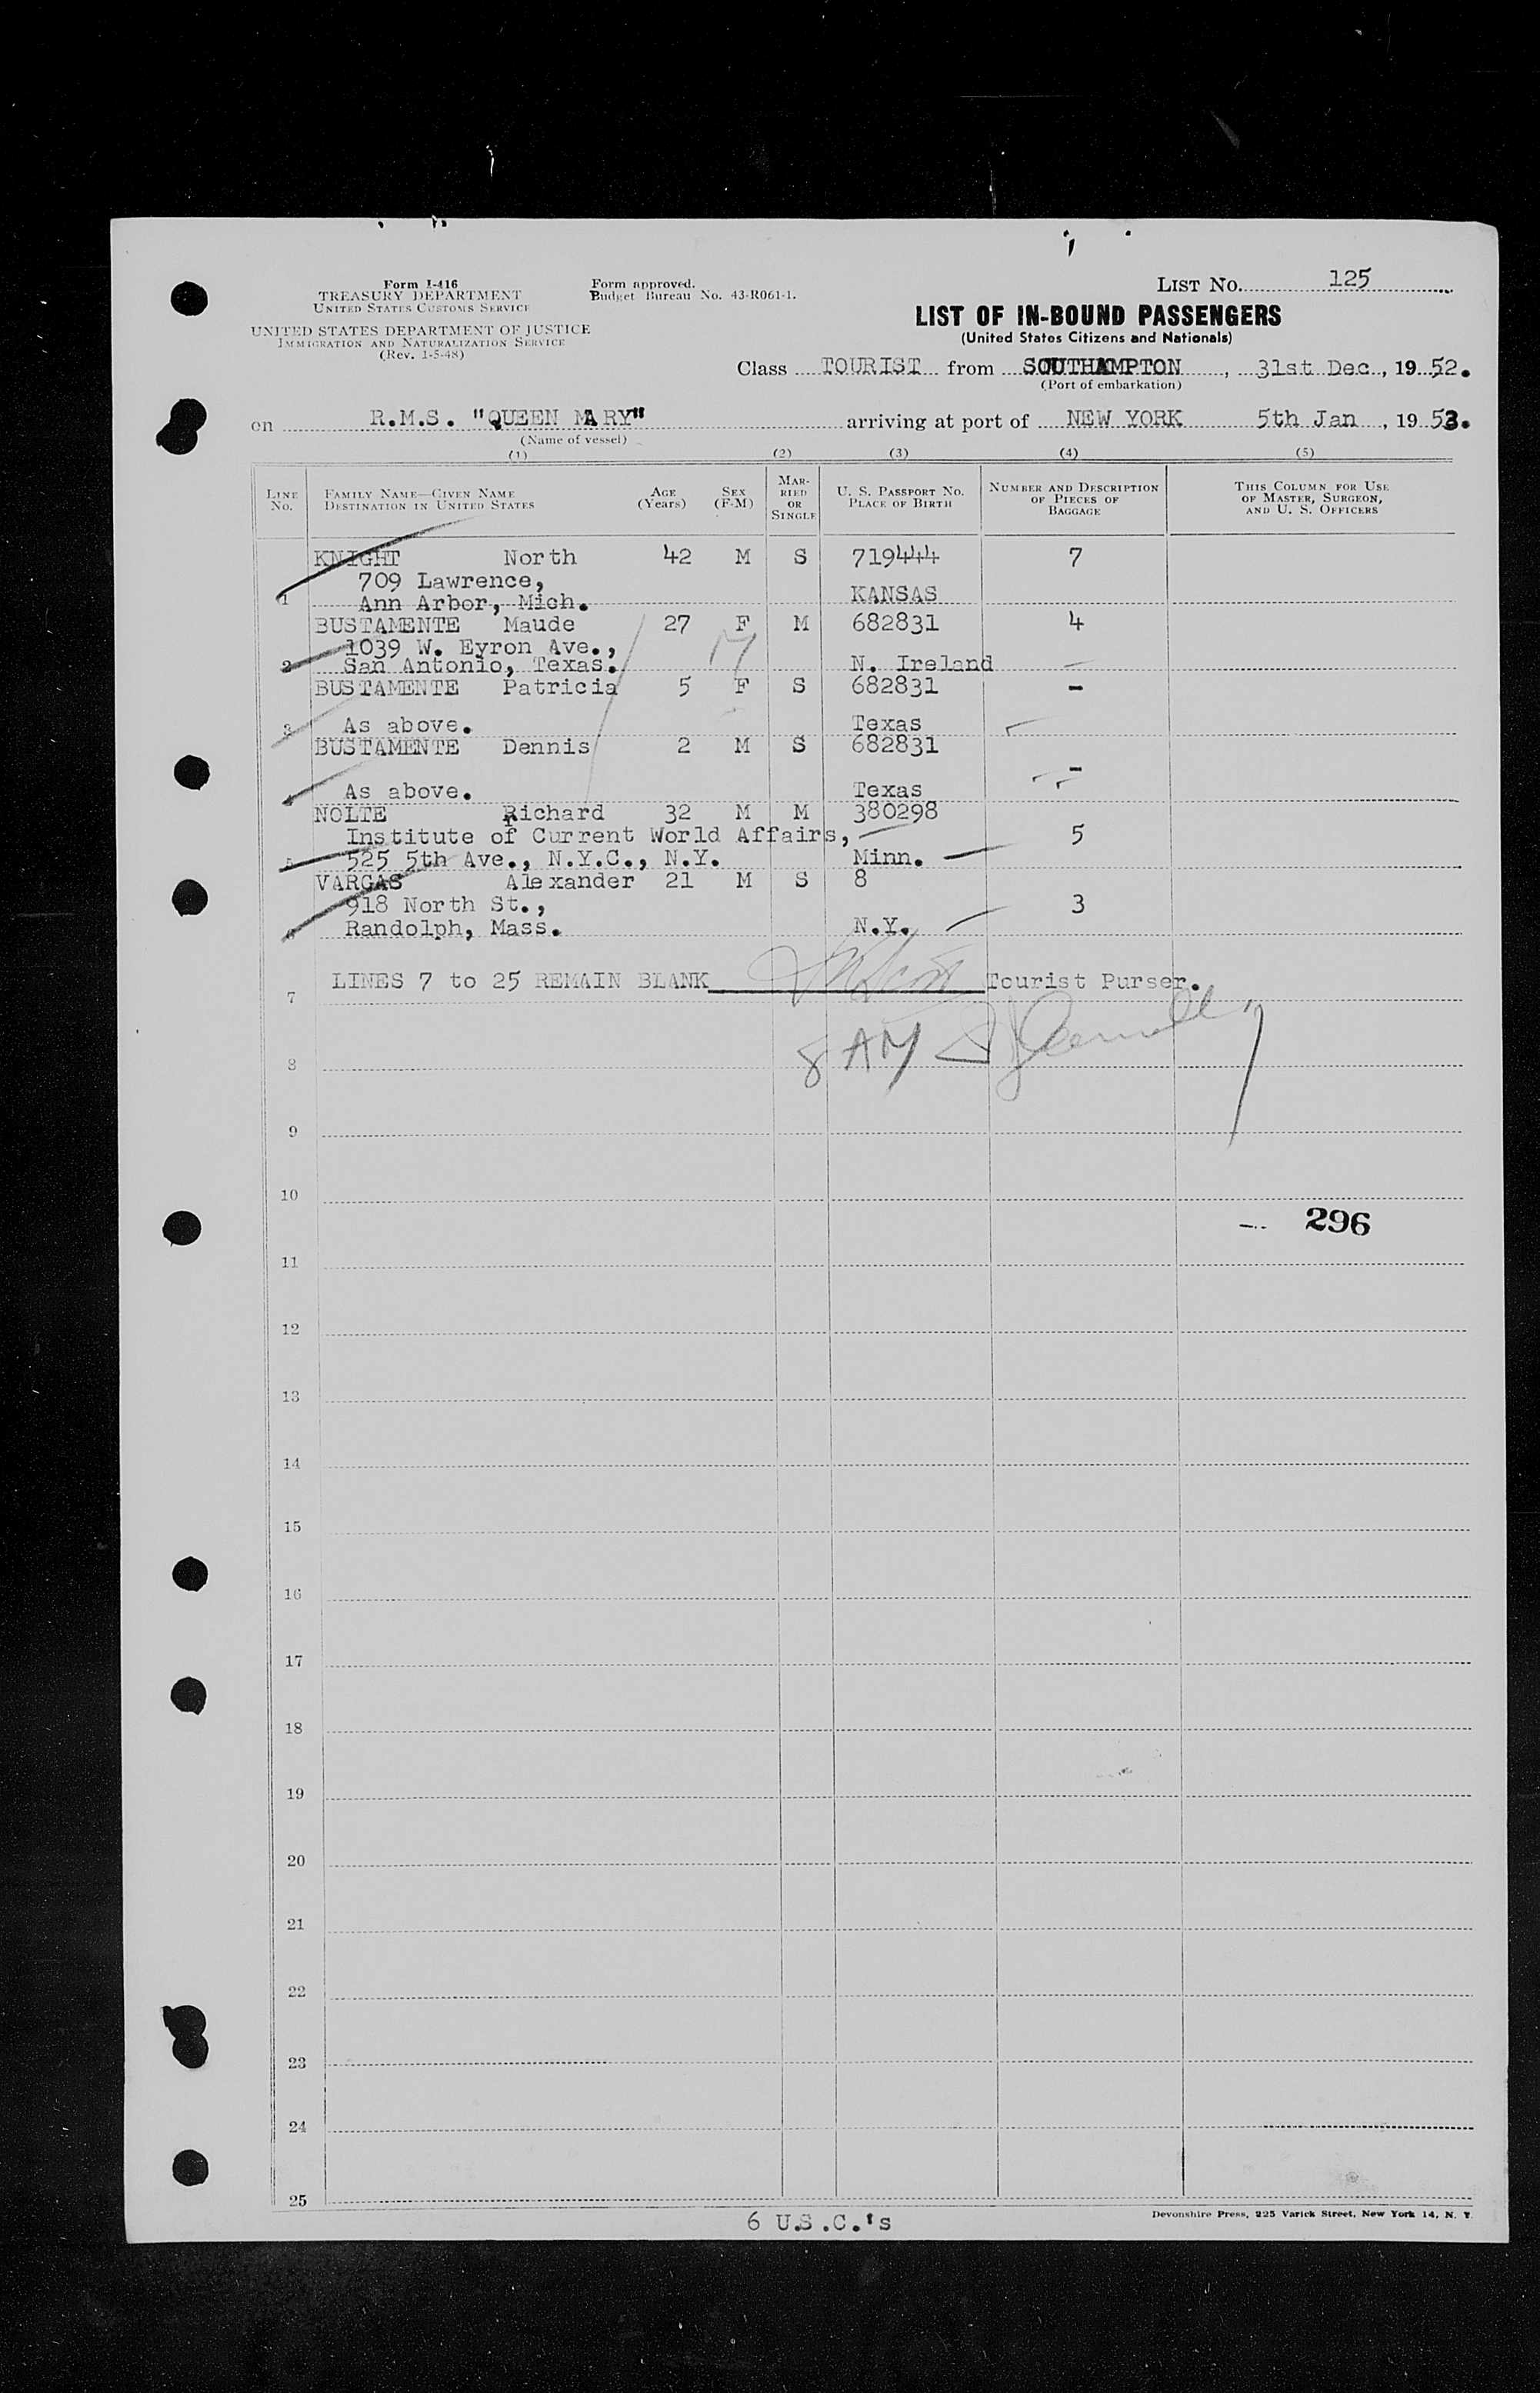 Form I-416
TREASURY DEPARTMENT
UNITED STATES CUSTOMS SERVICE
UNITED STATES DEPARTMENT OF JUSTICE
IMMIGRATION AND NATURALIZATION SERVICE
(Rev. 1-5-48)
Form approved.
Budget Bureau No. 43-R061-1.
LIST No. 125
LIST OF IN-BOUND PASSENGERS
(United States Citizens and Nationals)
Class TOURIST from SOUTHAMPTON, 31st Dec, 1952.
(Port of embarkation)
on R.M.S. "QUEEN MARY" arriving at port of NEW YORK 5th Jan, 1953.
(Name of vessel)
(1) (2) (3) (4) (5)
LINE No. FAMILY NAME—GIVEN NAME DESTINATION IN UNITED STATES AGE (Years) SEX (F-M) MARRIED OR SINGLE U. S. PASSPORT NO. PLACE OF BIRTH NUMBER AND DESCRIPTION OF PIECES OF BAGGAGE THIS COLUMN FOR USE OF MASTER, SURGEON, AND U. S. OFFICERS
KNIGHT North 42 M S 719444 7
709 Lawrence,
1 Ann Arbor, Mich. KANSAS
BUSTAMENTE Maude 27 F M 682831 4
1039 W. Eyron Ave.,
2 San Antonio, Texas. N. Ireland
BUSTAMENTE Patricia 5 F S 682831 -
3 As above. Texas
BUSTAMENTE Dennis 2 M S 682831
-
4 As above. Texas
NOLTE Richard 32 M M 380298
Institute of Current World Affairs, 5
5 525 5th Ave., N.Y.C., N.Y. Minn.
VARGAS Alexander 21 M S 8
918 North St., 3
6 Randolph, Mass. N.Y.
LINES 7 to 25 REMAIN BLANK Tourist Purser.
7
8 AM
8
9
10
296
11
12
13
14
15
16
17
18
19
20
21
22
23
24
25
6 U.S.C.'s
Devonshire Press, 225 Varick Street, New York 14, N. Y.